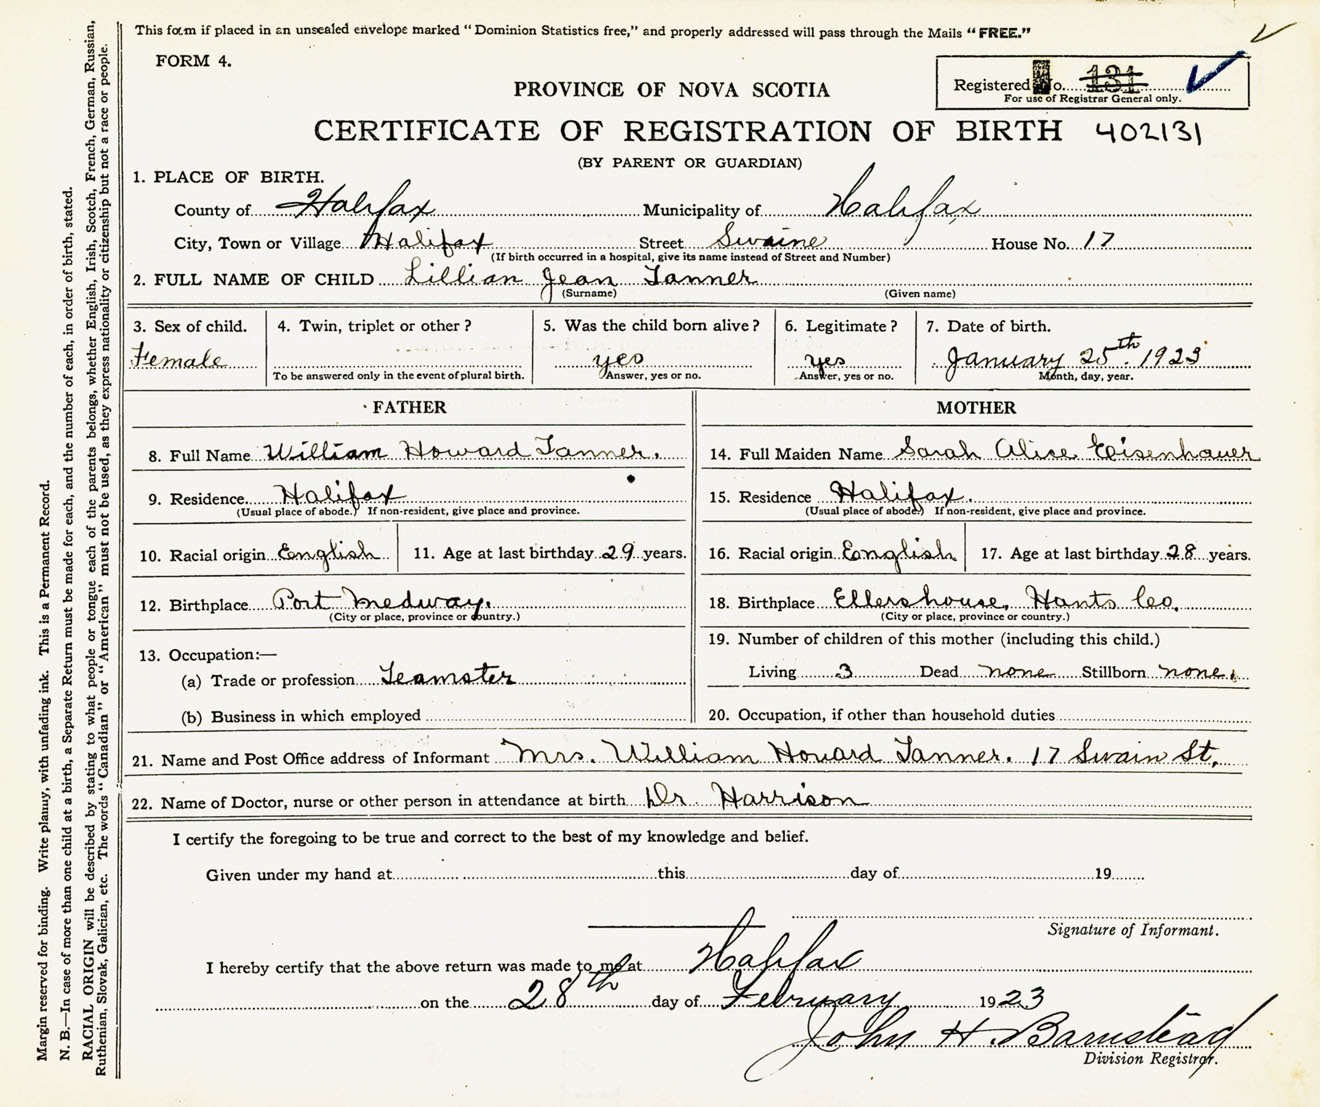 This form if placed in an unsealed envelope marked "Dominion Statistics free," and properly addressed will pass through the Mails "FREE."
FORM 4.
Registered No. 131
For use of Registrar General only.
PROVINCE OF NOVA SCOTIA
CERTIFICATE OF REGISTRATION OF BIRTH 402131
(BY PARENT OR GUARDIAN)
1. PLACE OF BIRTH.
County of Halifax Municipality of Halifax
City, Town or Village Halifax Street Swaine House No. 17
(If birth occurred in a hospital, give its name instead of Street and Number)
2. FULL NAME OF CHILD Lillian Jean Tanner
(Surname) (Given name)
3. Sex of child. 4. Twin, triplet or other? 5. Was the child born alive? 6. Legitimate? 7. Date of birth.
Female yes yes January 25th. 1923
To be answered only in the event of plural birth. Answer, yes or no. Answer, yes or no. Month, day, year.
FATHER MOTHER
8. Full Name William Howard Tanner. 14. Full Maiden Name Sarah Alice Eisenhauer
9. Residence Halifax 15. Residence Halifax.
(Usual place of abode.) If non-resident, give place and province. (Usual place of abode) If non-resident, give place and province.
10. Racial origin English 11. Age at last birthday 29 years. 16. Racial origin English 17. Age at last birthday 28 years.
12. Birthplace Port Medway. 18. Birthplace Ellershouse, Hants Co.
(City or place, province or country.) (City or place, province or country.)
19. Number of children of this mother (including this child.)
13. Occupation:—
(a) Trade or profession Teamster Living 3 Dead none Stillborn none.
(b) Business in which employed 20. Occupation, if other than household duties
21. Name and Post Office address of Informant Mrs. William Howard Tanner. 17 Swain St,
22. Name of Doctor, nurse or other person in attendance at birth Dr. Harrison
I certify the foregoing to be true and correct to the best of my knowledge and belief.
Given under my hand at this day of 19
Signature of Informant.
I hereby certify that the above return was made to me at Halifax
on the 28th day of February 1923
John H. Barnstead
Division Registrar.
Margin reserved for binding. Write plainly, with unfading ink. This is a Permanent Record.
N. B.—In case of more than one child at a birth, a Separate Return must be made for each, and the number of each, in order of birth, stated.
RACIAL ORIGIN will be described by stating to what people or tongue each of the parents belongs, whether English, Irish, Scotch, French, German, Russian,
Ruthenian, Slovak, Galician, etc. The words "Canadian" or "American" must not be used, as they express nationality or citizenship but not a race or people.